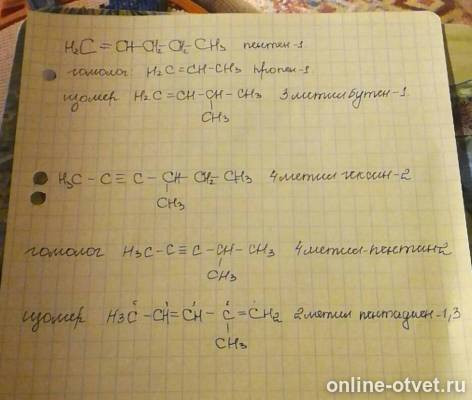 H₂C = CH-CH₂-CH₂-CH₃ пентен-1
гомолог H₂C=CH-CH₃ пропен-1
изомер H₂C=CH-CH-CH₃ 3 метил бутен-1
CH₃
H₃C - C ≡ C - CH - CH₂ - CH₃ 4 метил гексин-2
CH₃
гомолог H₃C-C≡C-CH-CH₃ 4 метил-пентин-2
CH₃
изомер H₃C - CH = CH - C = CH₂ 2 метил пентадиен-1,3
CH₃
online-otvet.ru